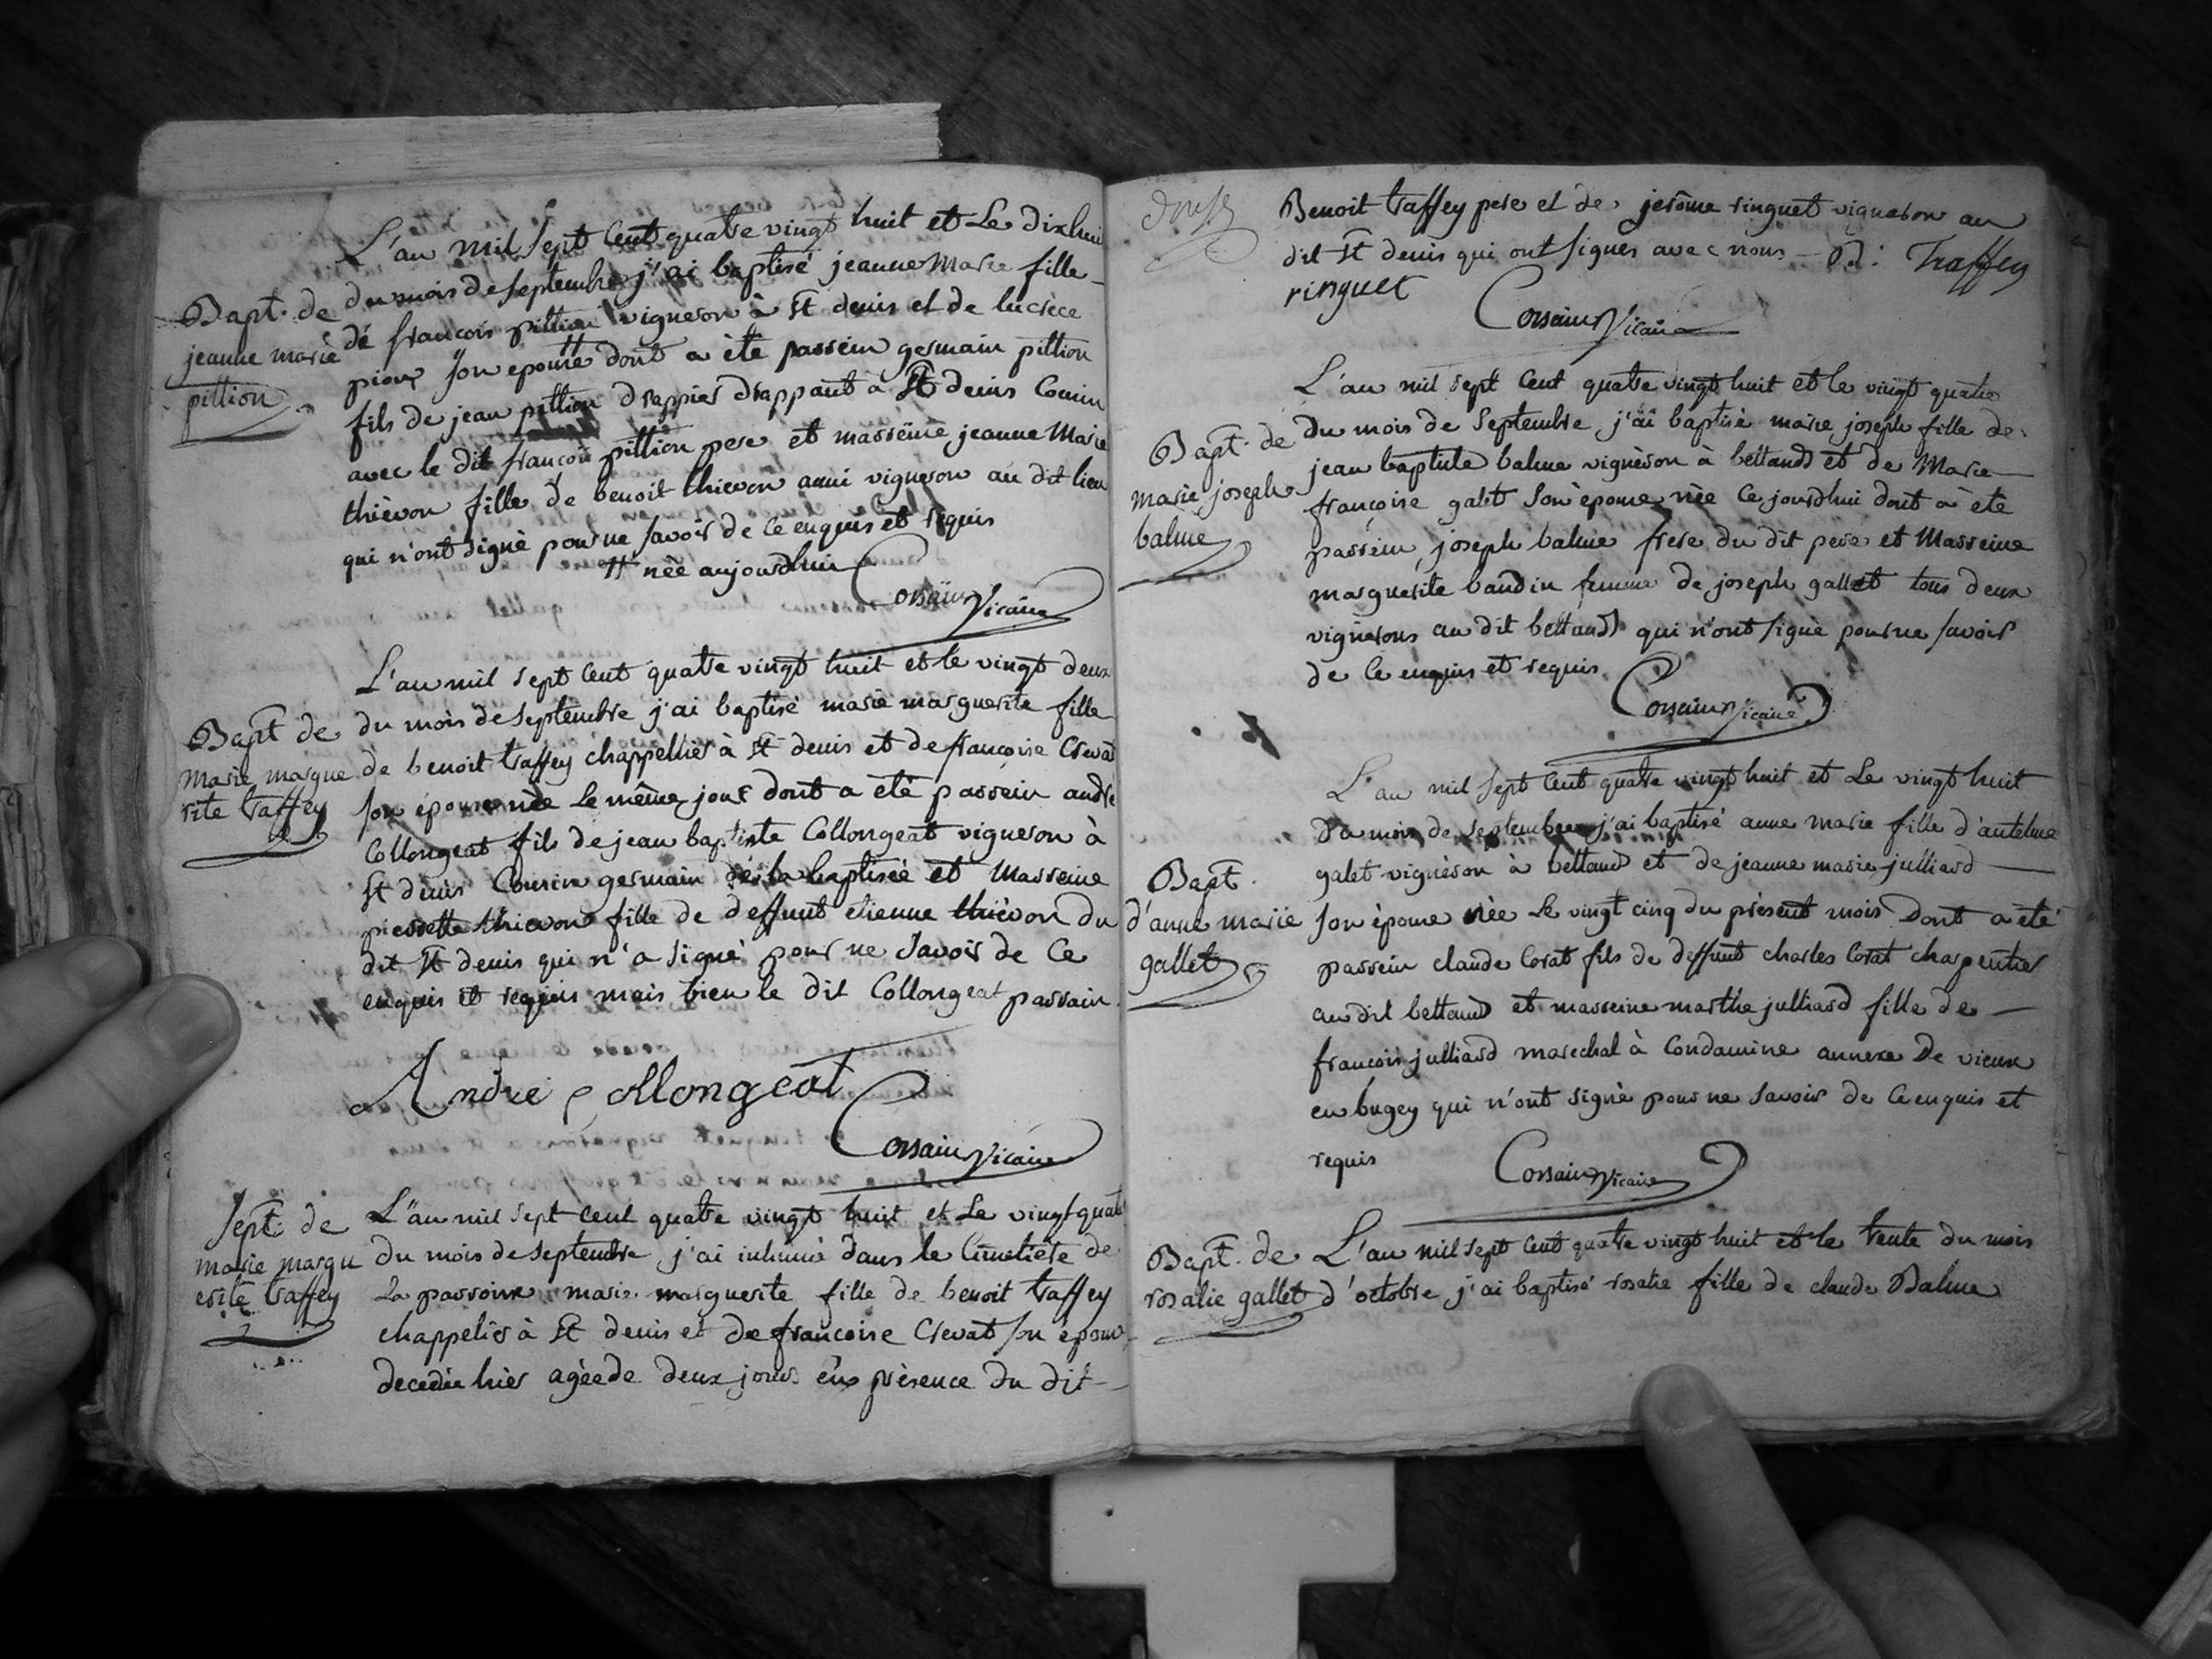 L'an mil sept cent quatre vingt huit et Le dixhui
Bapt. de
jeanne marie
pillion
du mois de septembre j'ai baptisé jeanne Marie fille
dé francois pillion vigneron à St denis et de lucrece
pion son epouse # dont a ète passein germain pillion
fils de jean pillion drappier drappant à St denis Cousin
avec le dit françois pillion pere et masseine jeanne Marie
thièvon fille de benoit thievon aussi vigneron au dit lieu
qui n'ont signè pour ne savoir de ce enquis et requis
# nèe aujourdhui
Corsain Vicaire
L'an mil sept cent quatre vingt huit et le vingt deux
Bapt de
Marie margue
rite traffey
du mois de septembre j'ai baptisé marie marguerite fille
de benoit traffey chappellier à St denis et de francoise Crevat
son épouse nèe le même jour dont a eté passein andré
Collongeat fils de jean baptiste Collongeat vigneron à
St denis Cousin germain de la baptisée et Masseine
pierrette thievon fille de deffunt etienne thièvon du
dit St denis qui n'a signé pour ne savoir de ce
enquis et requis mais bien le dit Collongeat parrain
Andre Collongeat
Corsain Vicaire
Sept. de
marie margu
erite traffey
L'an mil sept cent quatre vingt huit et Le vingt quatr
du mois de septembre j'ai inhumé dans le Cimetiere de
La parroisse marie marguerite fille de benoit traffey
chappelier à St denis et de francoise Crevat son épous
decedée hier agèe de deux jours en prèsence du dit
Benoit traffey pere et de jerôme ringuet vigneron au
dit St denis qui ont signes avec nous - B: Traffey
ringuet
Corsain Vicaire
L'an mil sept Cent quatre vingt huit et le vingt quatre
Bapt. de
marie joseph
balme
Du mois de Septembre j'ai baptisè marie joseph fille de
jean baptiste balme vignèron à bettand et de Marie
françoise galet son èpouse nèe ce jourdhui dont a ète
passein joseph balme frere du dit pere et Masseine
marguerite baudin femme de joseph gallet tous deux
vignèrons au dit bettand qui n'ont signè pour ne savoir
de ce enquis et requis
Corsain Vicaire
L'an mil sept cent quatre vingt huit et Le vingt huit
Bapt.
d'anne marie
gallet
du mois de septembre j'ai baptisé anne marie fille d'antelme
galet vignèron à bettand et de jeanne marie julliard
son èpouse nèe Le vingt cinq du prèsent mois Dont a eté
passein claude Corat fils de deffunt charles Corat charpentier
au dit bettand et masseine marthe julliard fille de
francois julliard marechal à Condamine annexe De vieux
en bugey qui n'ont signè pour ne savoir de ce enquis et
requis
Corsain Vicaire
Bapt. de
rosalie gallet
L'an mil sept cent quatre vingt huit et le trente du mois
d'octobre j'ai baptisé rosalie fille de claude Balme